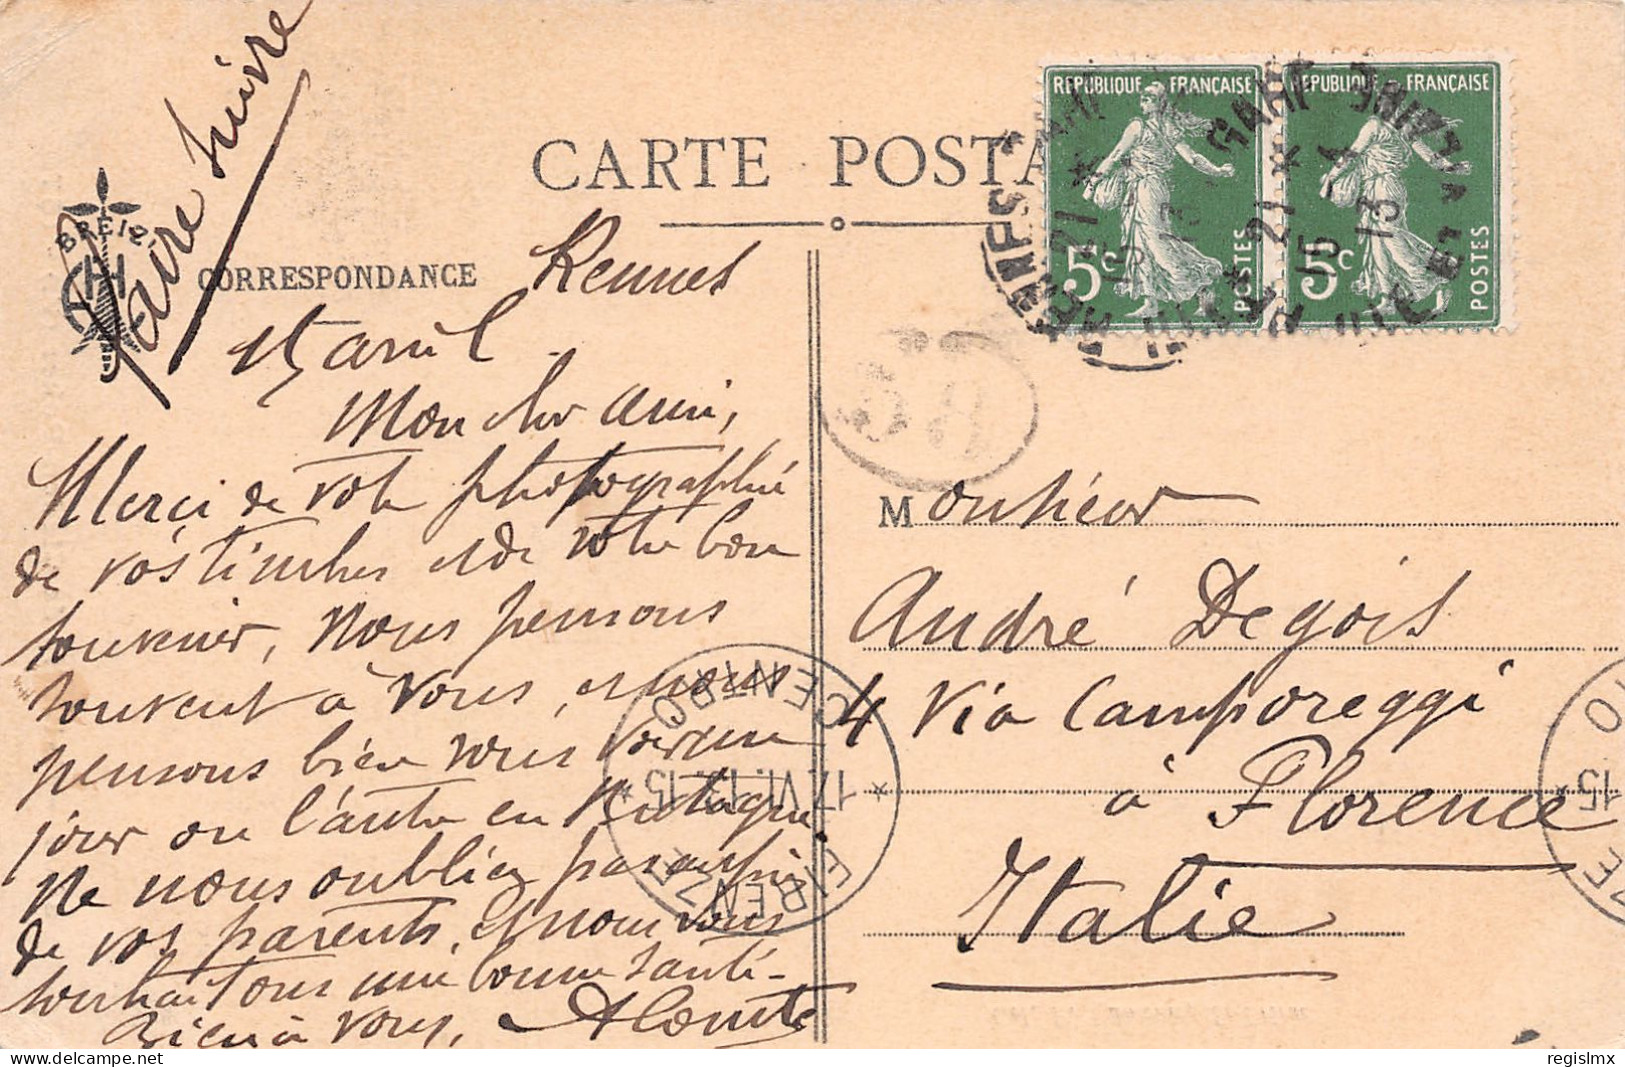 Faire suivre
CARTE POSTA
BREIZ
CORRESPONDANCE
Rennes
15 avril
Mon cher ami,
Merci de votre photographie
de vos timbres et de votre bon
souvenir, nous pensons
souvent à vous, et nous
pensons bien vous voir un
jour ou l'autre en Bretagne
Ne nous oubliez pas auprès
de vos parents, et nous vous
souhaitons une bonne santé-
Bien à vous, A Comte
REPUBLIQUE FRANÇAISE
5c POSTES
REPUBLIQUE FRANÇAISE
5c POSTES
RENNES GARE
21 * 15
13
ILLE ET VILAINE
Monsieur
André Degois
4 Via Camporeggi
à Florence
Italie
FIRENZE
17.VI.13.15
CENTRO
*15
regislmx
www.delcampe.net